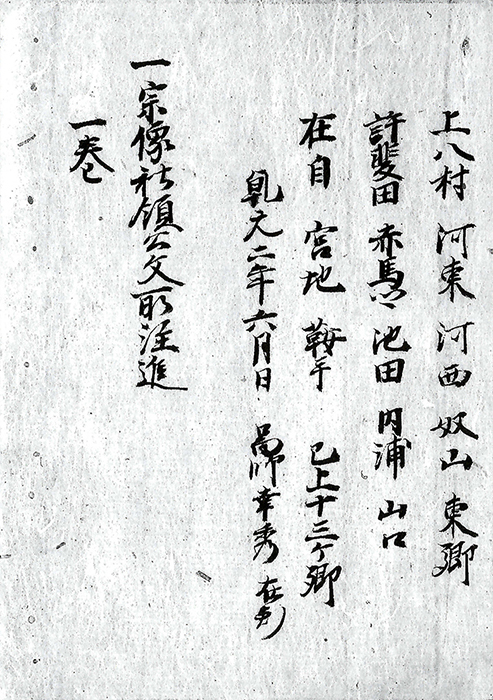 上八村 河東 河西 奴山 東郷
許斐田 赤馬 池田 内浦 山口
在自 宮地 鞍手 已上十三ヶ郷
乹元二年六月日 幸秀 在判
一宗像社領公文所注進
一巻